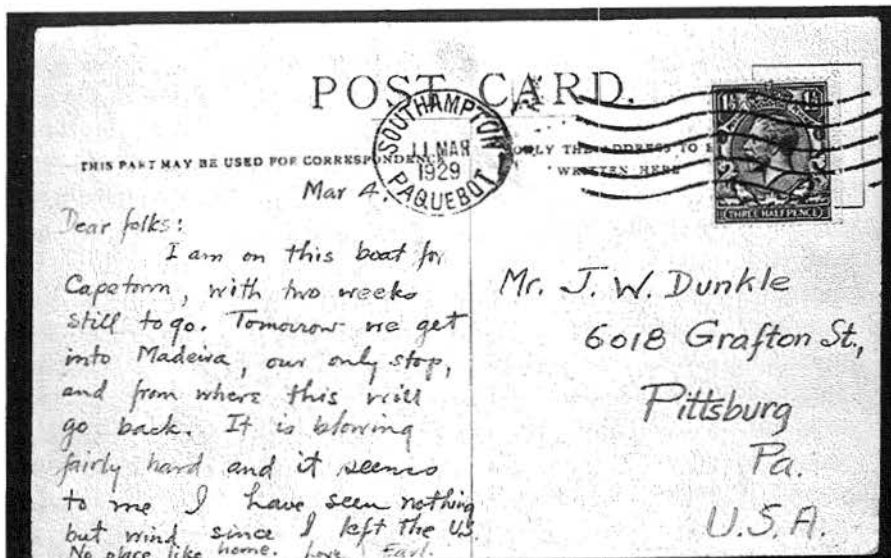 POST CARD.
SOUTHAMPTON
11 MAR
1929
PAQUEBOT
1½ 1½
THREE HALF PENCE
THIS PART MAY BE USED FOR CORRESPONDENCE
ONLY THE ADDRESS TO
WRITTEN HERE
Mar 4.
Dear folks:
I am on this boat for
Capetown, with two weeks
still to go. Tomorrow we get
into Madeira, our only stop,
and from where this will
go back. It is blowing
fairly hard and it seems
to me I have seen nothing
but wind since I left the U.S.
No place like home. Love Earl.
Mr. J. W. Dunkle
6018 Grafton St.,
Pittsburg
Pa.
U.S.A.